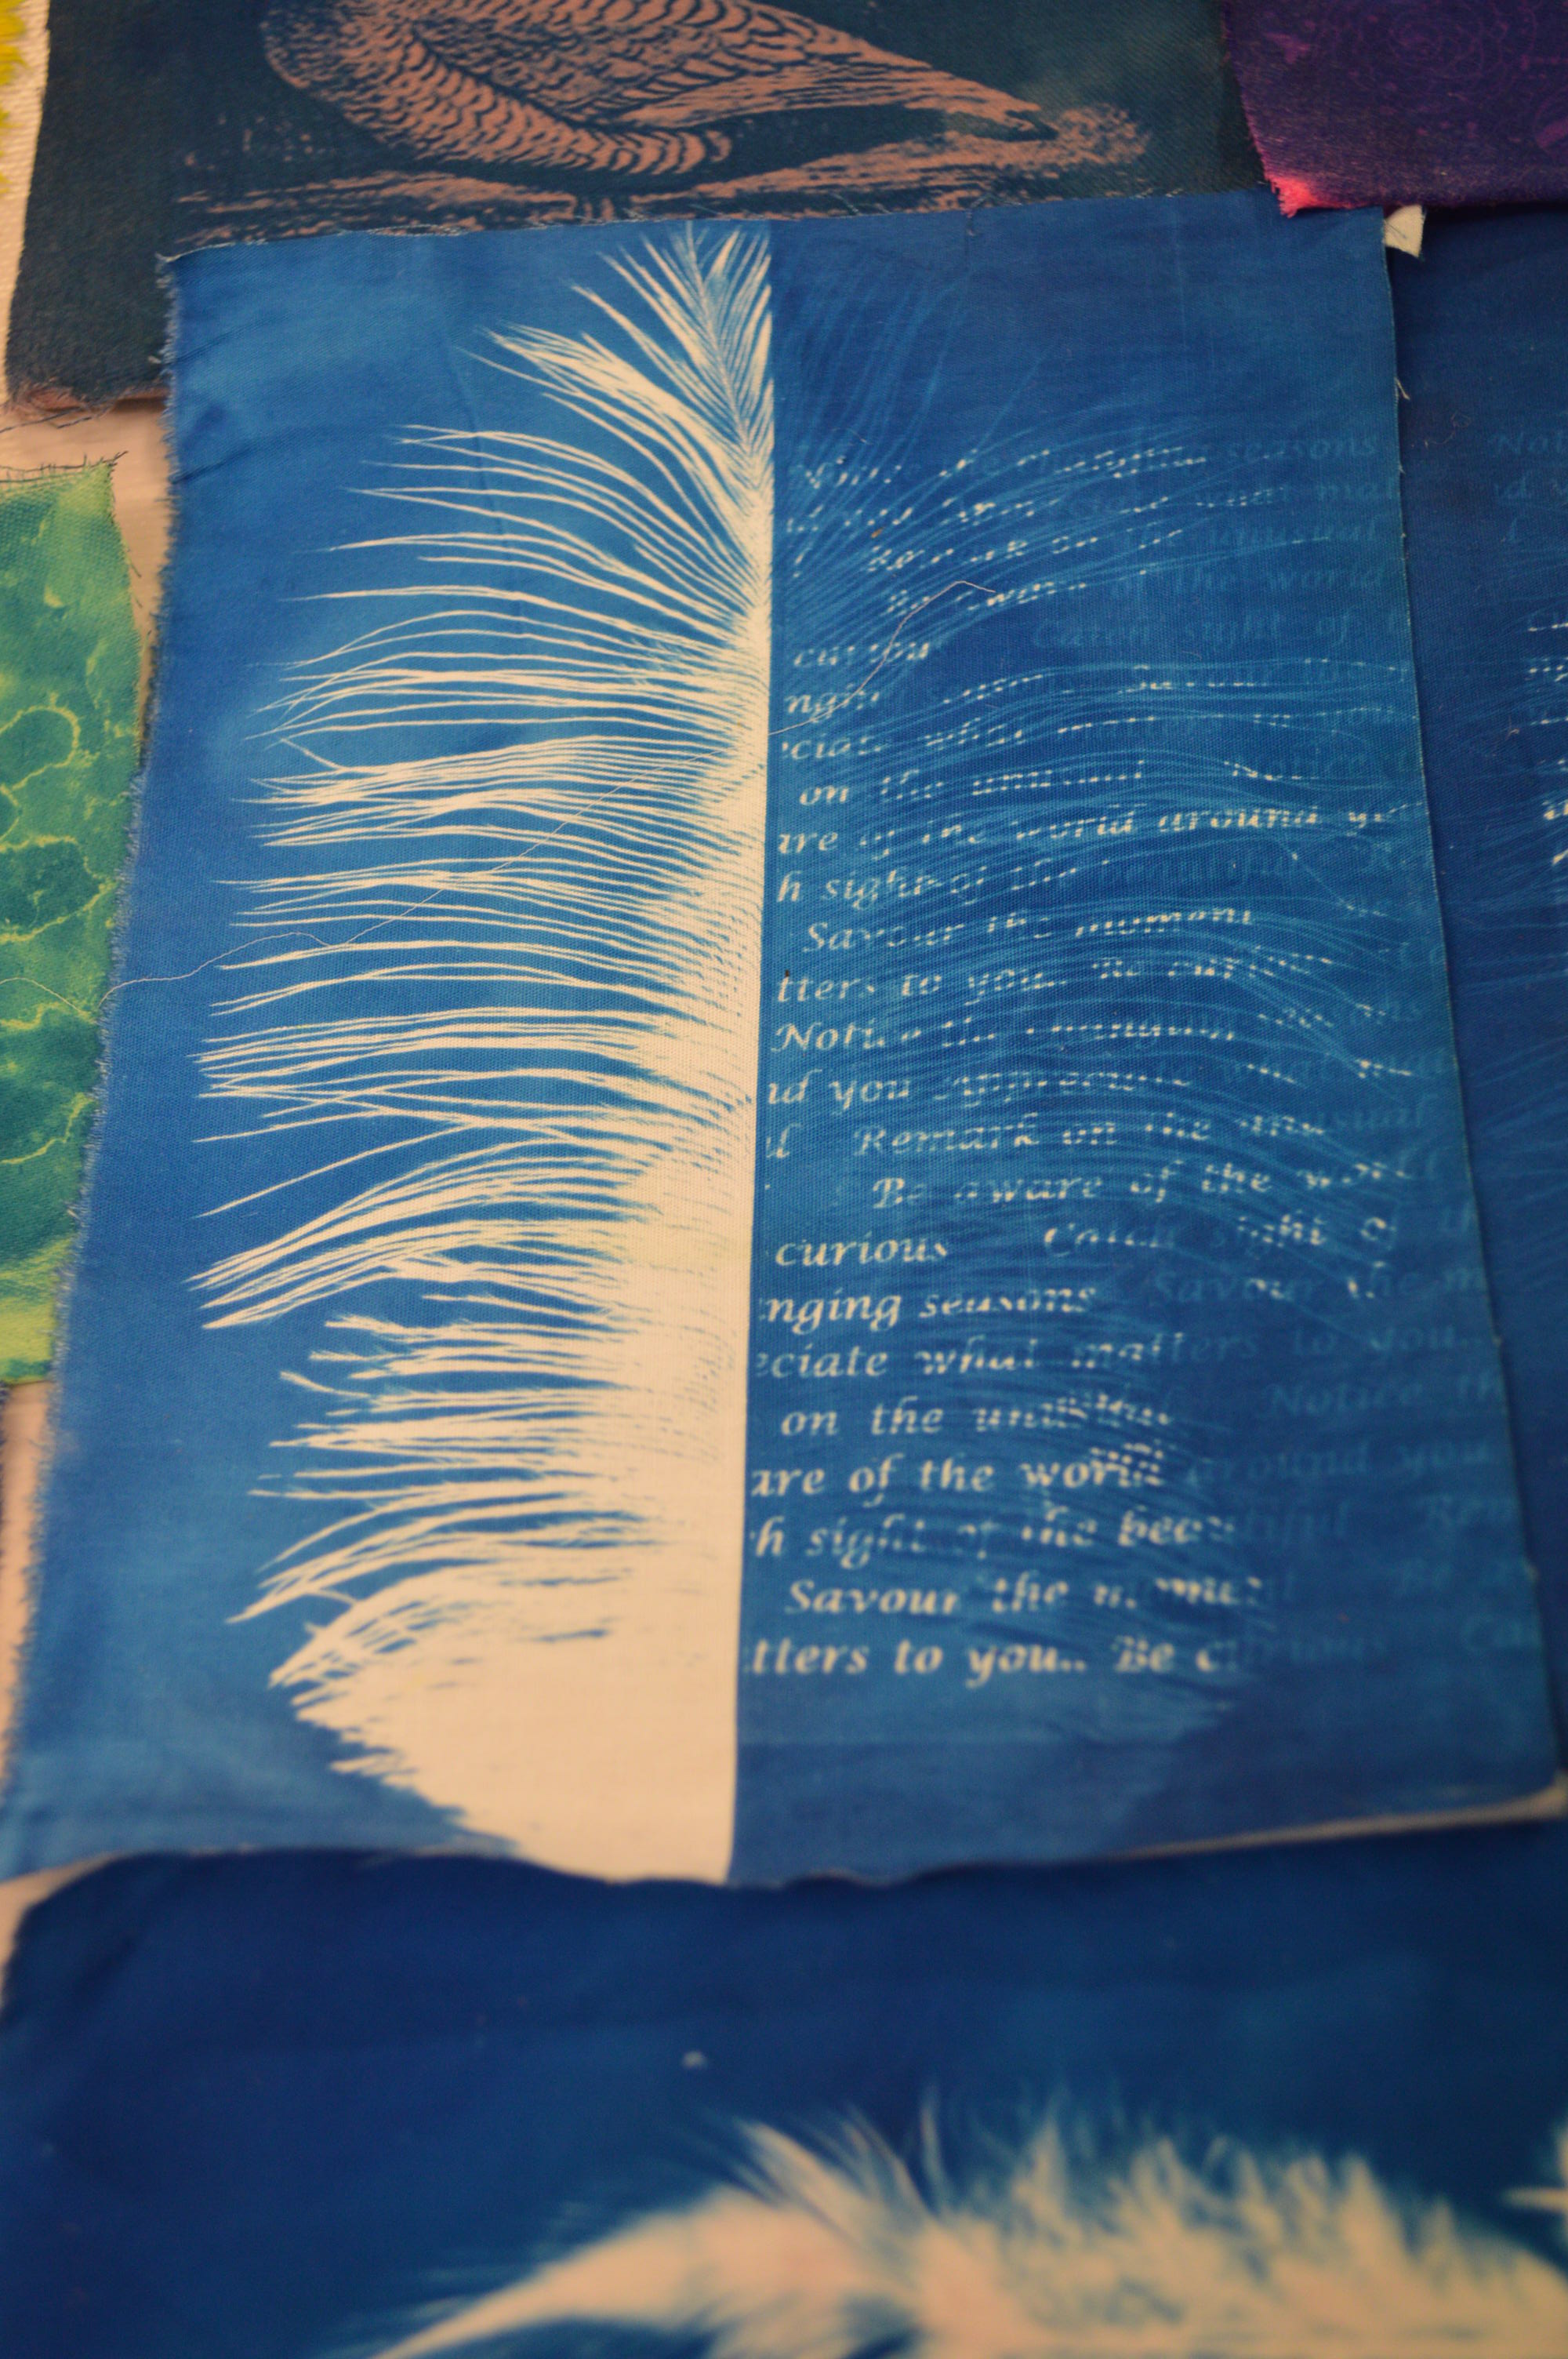 Notice the changing seasons
what mat
Remark on the unusual
Be aware of the world
curious Catch sight of
nging seasons Savour the
eciate what matters to you
on the unusual Notice
are of the world around yo
h sight of the beautiful Re
Savour the moment
tters to you.. Be curious
Notice the changing seasons
nd you appreciate what mat
al Remark on the unusual
Be aware of the world
curious Catch sight of th
nging seasons Savour the m
eciate what matters to you..
on the unusual Notice th
are of the world around you
h sight of the beautiful Rem
Savour the moment
tters to you.. Be curious Ca